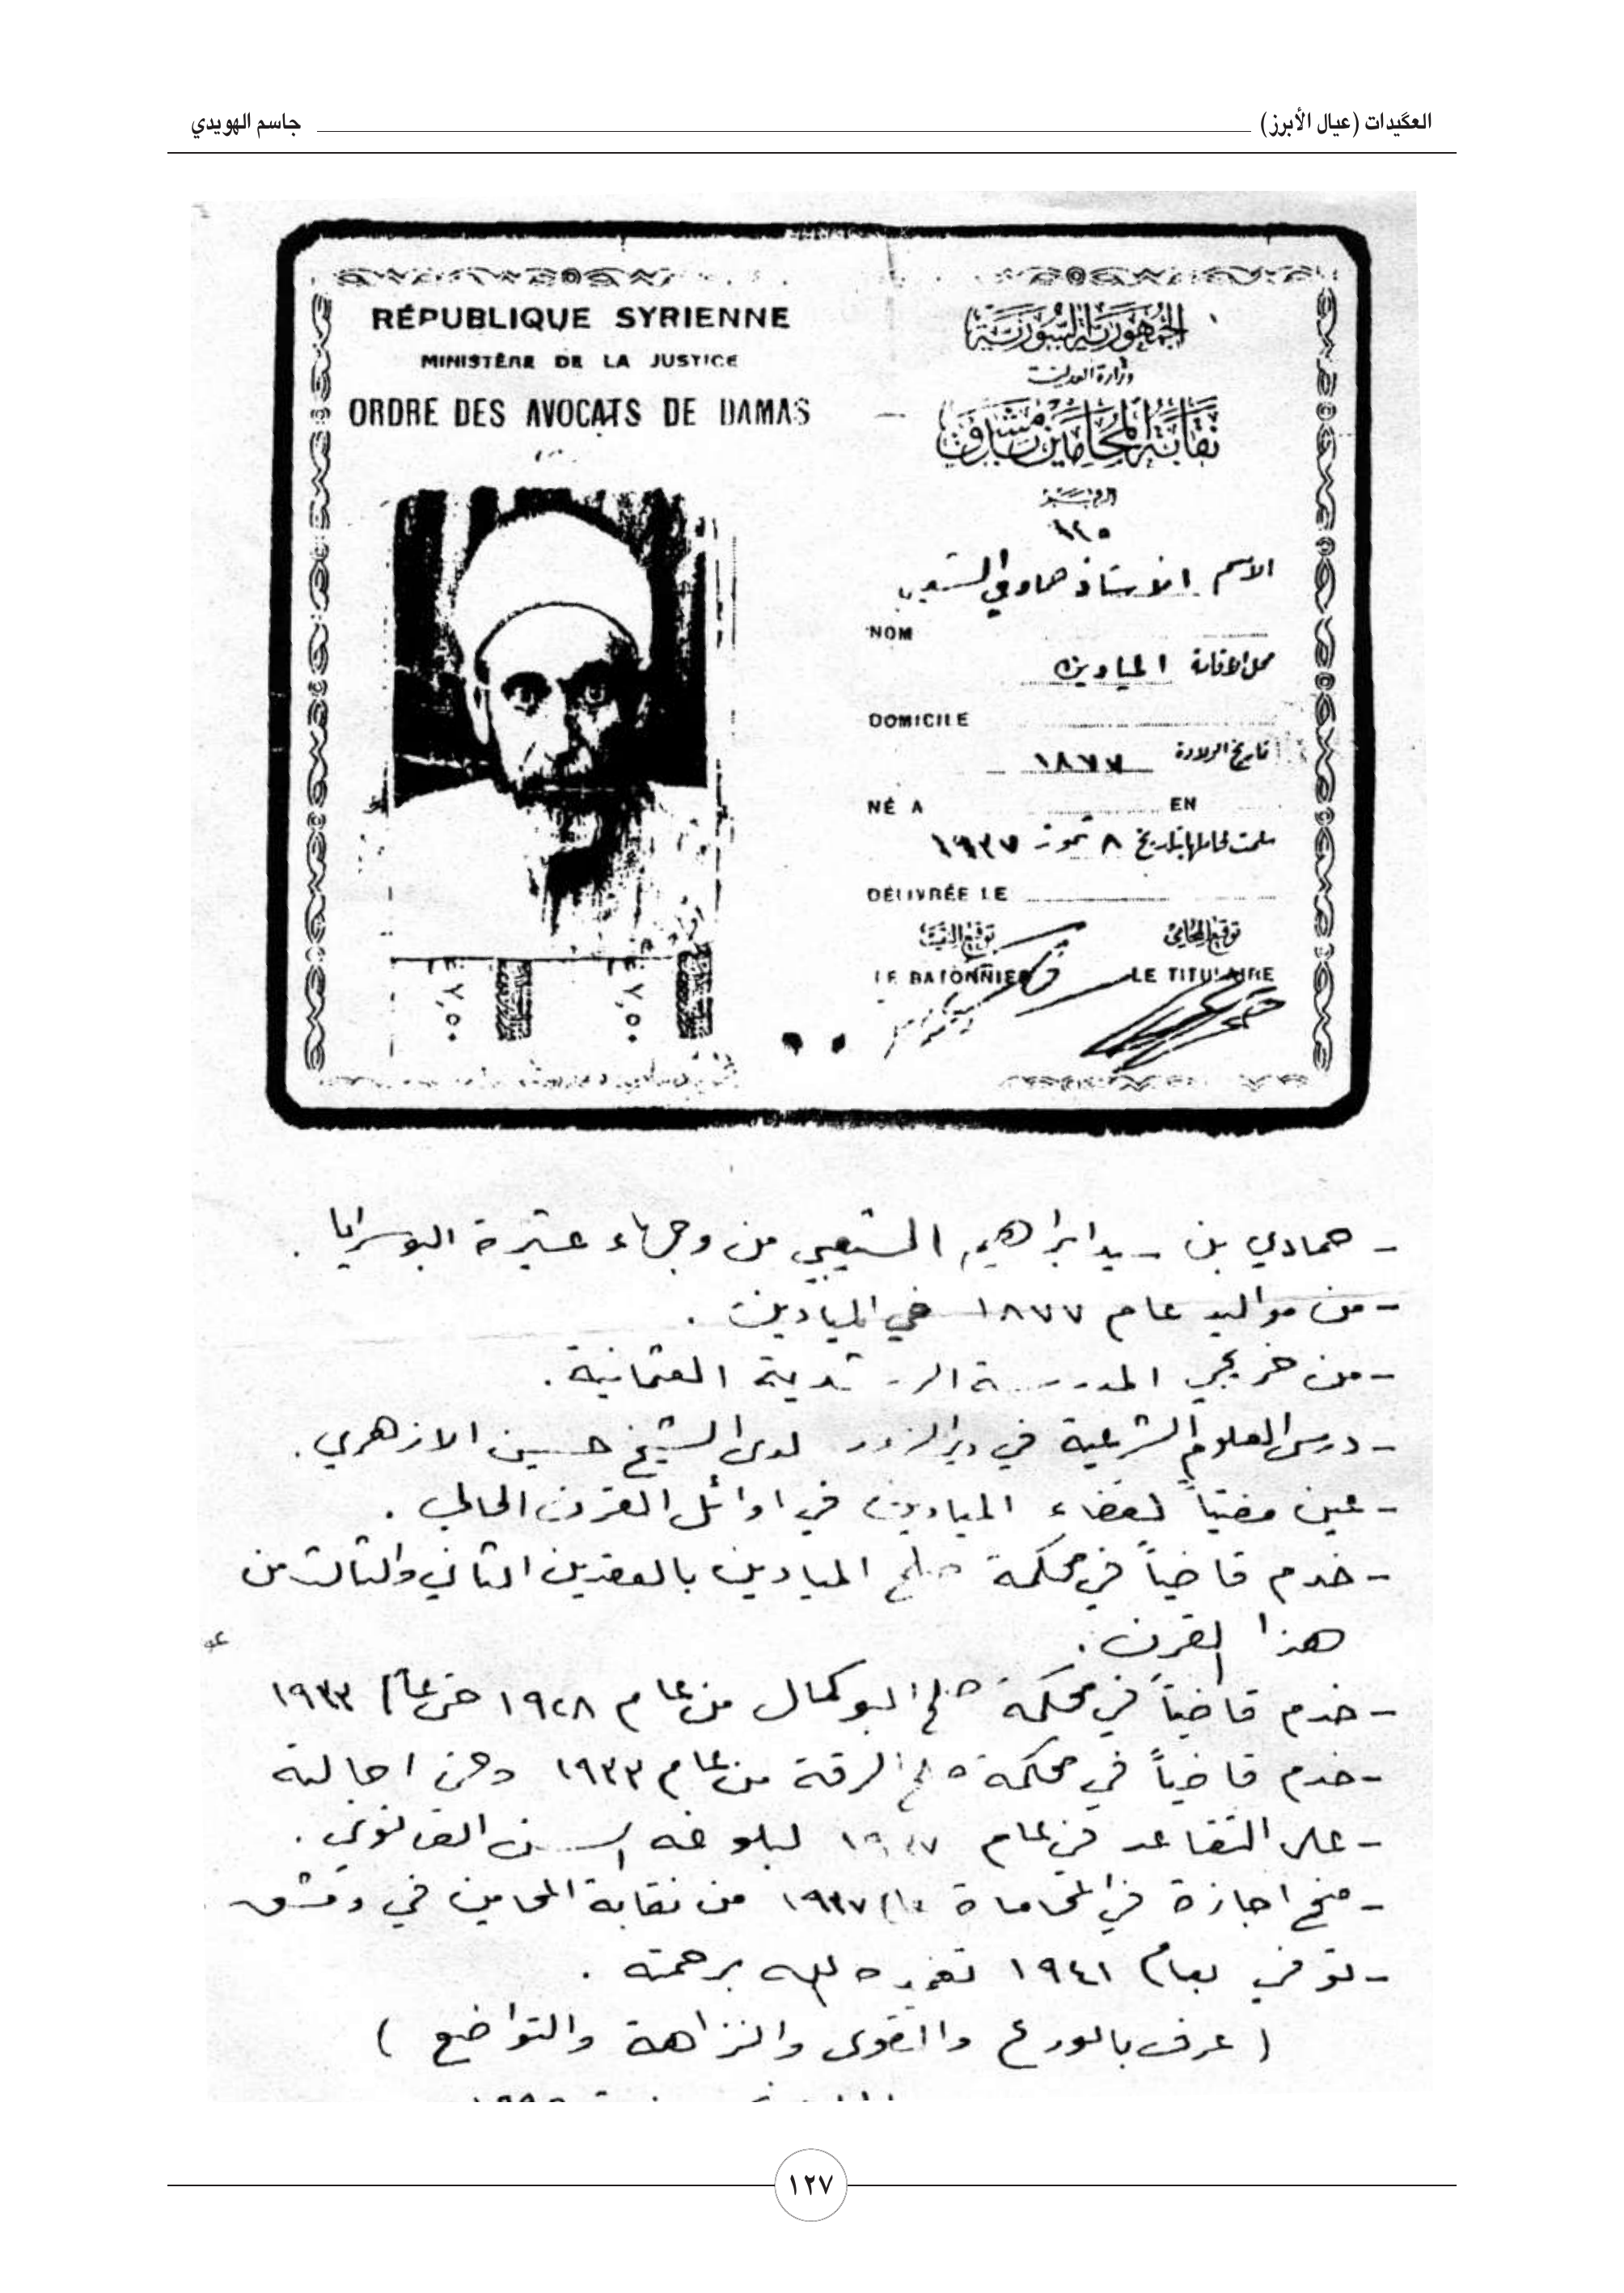 العگيدات (عيال الأبرز) جاسم الهويدي
RÉPUBLIQUE SYRIENNE
MINISTÈRE DE LA JUSTICE
ORDRE DES AVOCATS DE DAMAS
الجمهورية السورية
وزارة العدلية
نقابة المحامين بدمشق
الاسم الاستاذ حمادي الشعيبي
NOM
محل الاقامة الميادين
DOMICILE
تاريخ الولادة ١٨٧٧
NÉ A EN
سلمت لحاملها بتاريخ ٨ تموز ١٩٣٧
DÉLIVRÉE LE
توقيع المحامي توقيع النقيب
LE BATONNIER LE TITULAIRE
- حمادي بن سيد ابراهيم الشعيبي من وجهاء عشيرة البوسرايا .
- من مواليد عام ١٨٧٧ في الميادين .
- من خريجي المدرسة الرشدية العثمانية .
- درس العلوم الشرعية في ديرالزور لدى الشيخ حسين الازهري .
- عين مفتياً لقضاء الميادين في اوائل القرن الحالي .
- خدم قاضياً في محكمة صلح الميادين بالعقدين الثاني والثالث من
هذا القرن .
- خدم قاضياً في محكمة صلح البوكمال من عام ١٩٢٨ حتى عام ١٩٣٣
- خدم قاضياً في محكمة صلح الرقة من عام ١٩٣٣ وحتى احالته
- على التقاعد في عام ١٩٣٧ لبلوغه السن القانوني .
- منح اجازة في المحاماة عام ١٩٣٧ من نقابة المحامين في دمشق
- توفي بعام ١٩٤١ تغمده الله برحمته .
( عرف بالورع والتقوى والنزاهة والتواضع )
١٢٧